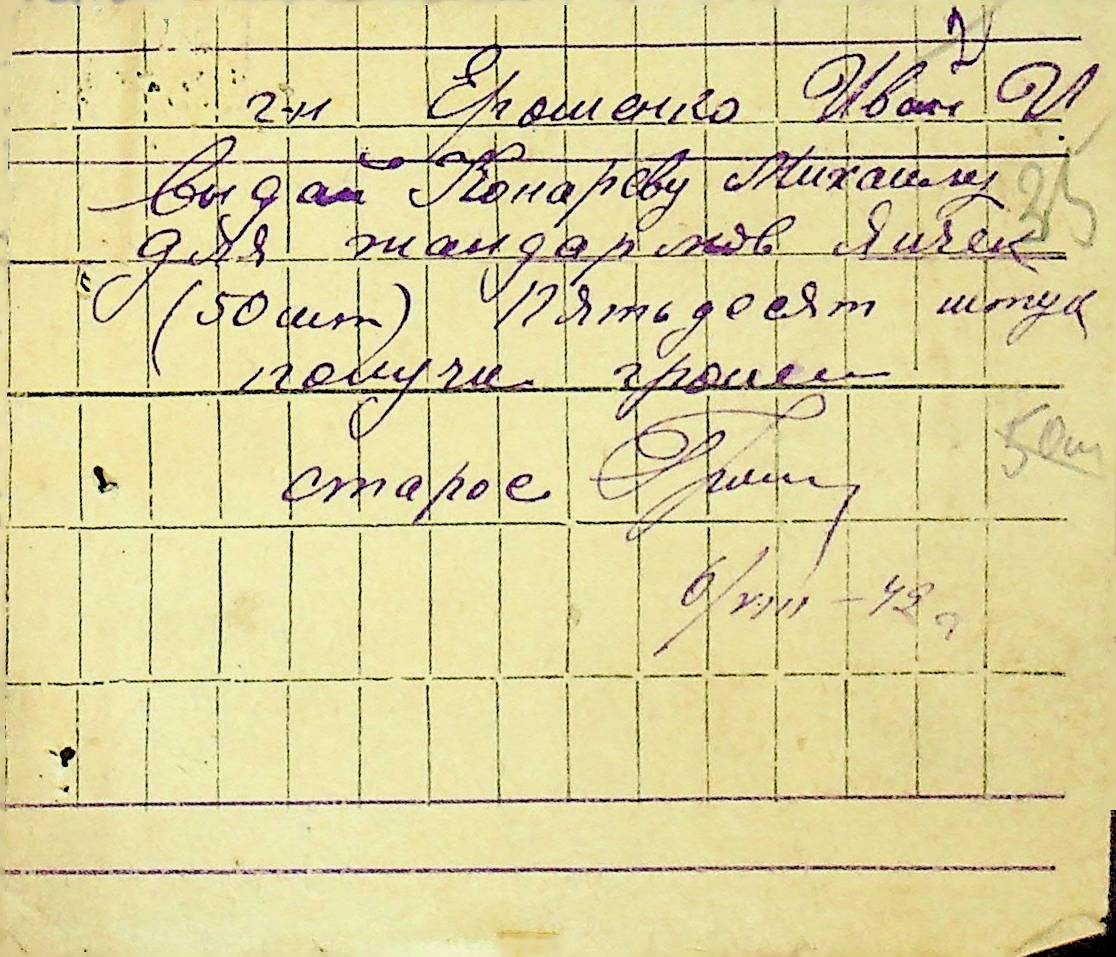 г-н Ерошенко Иван И.
Выдай Конареву Михаилу
для жандармов яичек
(50 шт) Пятьдесят штук
получи гроши
старос
6/VIII - 42 г
50 ш